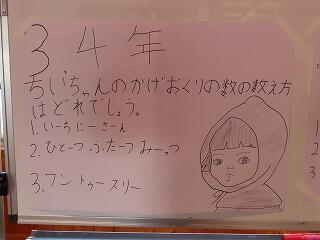 34年
ちいちゃんのかげおくりの数の数え方
はどれでしょう。
1. いーち にー さーん
2. ひとーつ ふたーつ みーっつ
3. ワン トゥー スリー